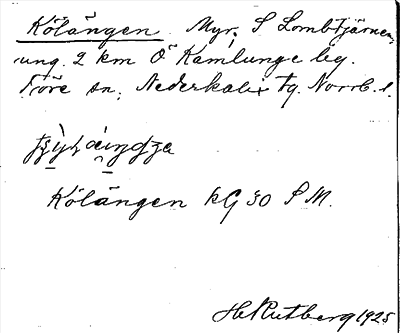 Kölängen. Myr. S Lombtjärnen,
ung. 2 km Ö Kamlunge by.
Töre sn, Nederkalix tg. Norrb. l.
Kölängen kG 30 S M.
H. Rutberg 1925